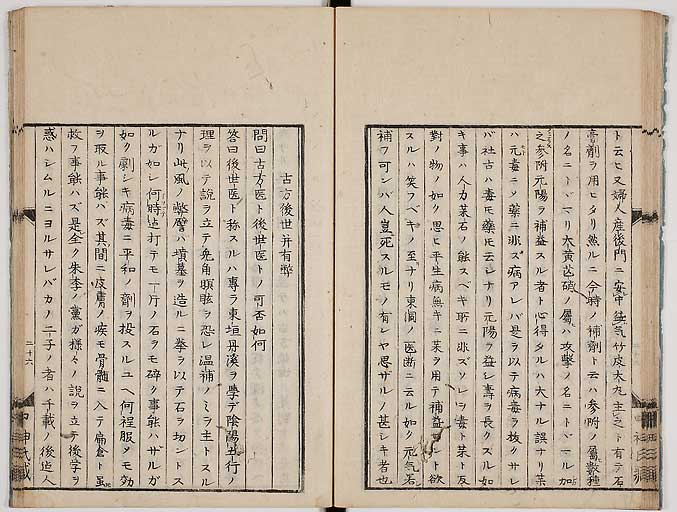 ト云ヒ又婦人産後門ニ安中益気竹皮大丸主之ト有テ石
膏剤ヲ用ヒタリ然ルニ今時ノ補剤ト云ハ参附ノ属数種
ノ名ニトヾマリ大黄芒硝ノ属ハ攻撃ノ名ニトヾマル加
之参附元陽ヲ補益スル者ト心得タルハ大ナル誤ナリ薬
ハ元毒ニシテ薬ニ非ズ病アレバ是ヲ以テ病毒ヲ抜クサレ
バ社古ハ毒モ薬ト云シナリ元陽ヲ益シ寿ヲ長クスル如
キ事ハ人力薬石ノ能スベキ所ニ非ズソレヲ毒ト薬ト反
対ノ物ノ如ク思ヒ平生病無キニ薬ヲ用テ補益セント欲
スルハ笑フベキノ至ナリ東洞ノ医断ニ云ル如ク元気若
補フ可ンバ人豈死スルモノ有ンヤ思ザルノ甚シキ者也
古方後世并有弊
問曰古方医ト後世医トノ可否如何
答曰後世医ト称スルハ専ラ東垣丹溪ヲ学デ陰陽五行ノ
理ヲ以テ説ヲ立テ兎角瞑眩ヲ恐レ温補ノミヲ主トスル
ナリ此風ノ弊譬ハ墳墓ヲ造ルニ拳ヲ以テ石ヲ切ントス
ルガ如シ何時迄打テモ一片ノ石ヲモ砕ク事能ハザルガ
如ク劇シキ病毒ニ平和ノ剤ヲ投スルユヘ何程服シタモ効
ヲ取ル事能バズ其間ニ皮膚ノ疾モ骨髄ニ入テ扁倉ト虽
救フ事能ハズ是全ク朱李ノ党ガ様々ノ説ヲ立テ後学ヲ
惑ハシムルニヨルサレバカノ二子ノ者ハ千載ノ後迄人
二十六